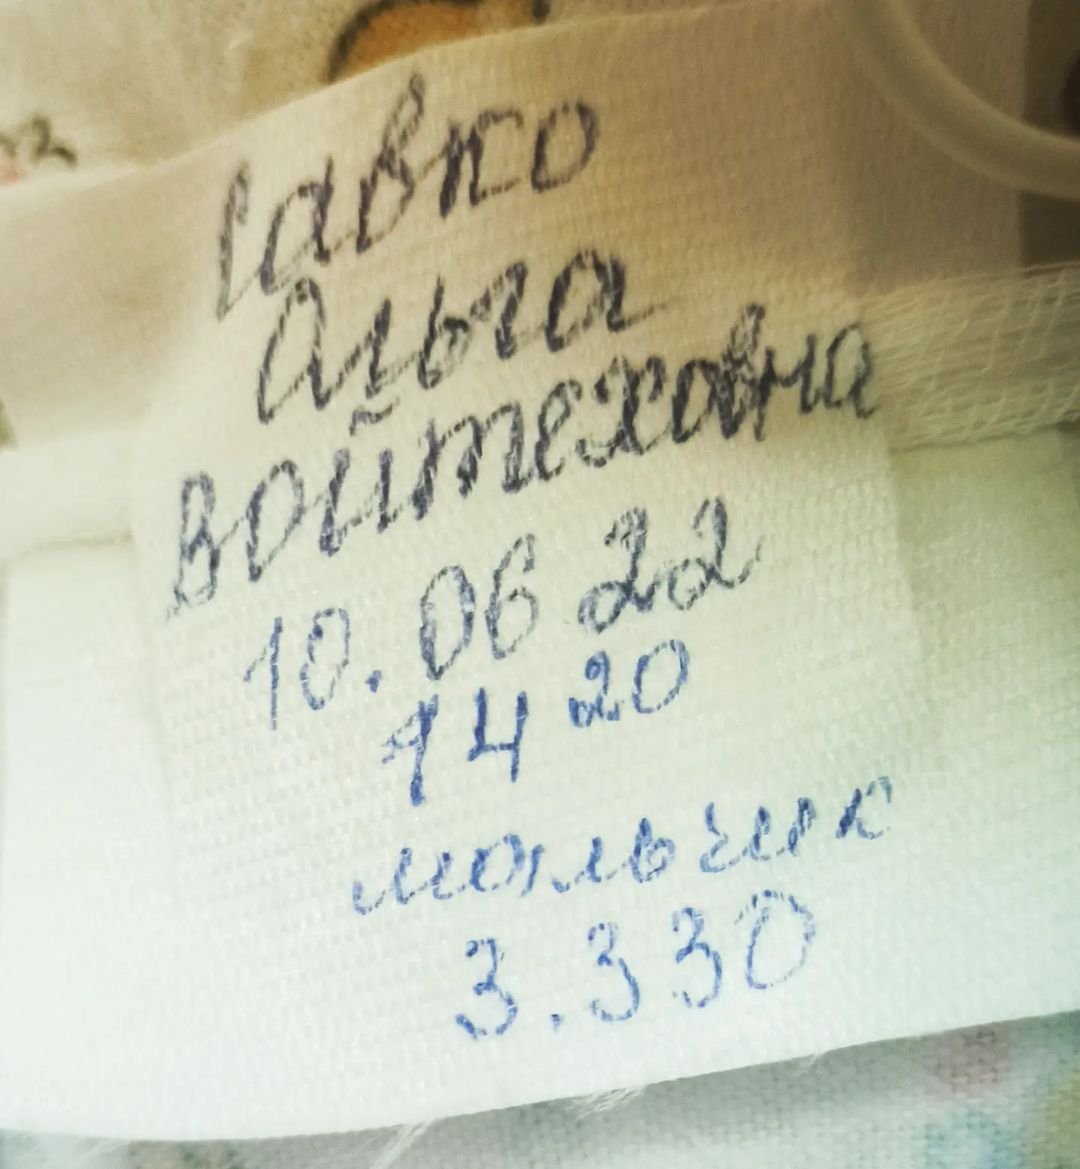 Савко
Ольга
Войтеховна
10.06 22
14 20
мальчик
3.330